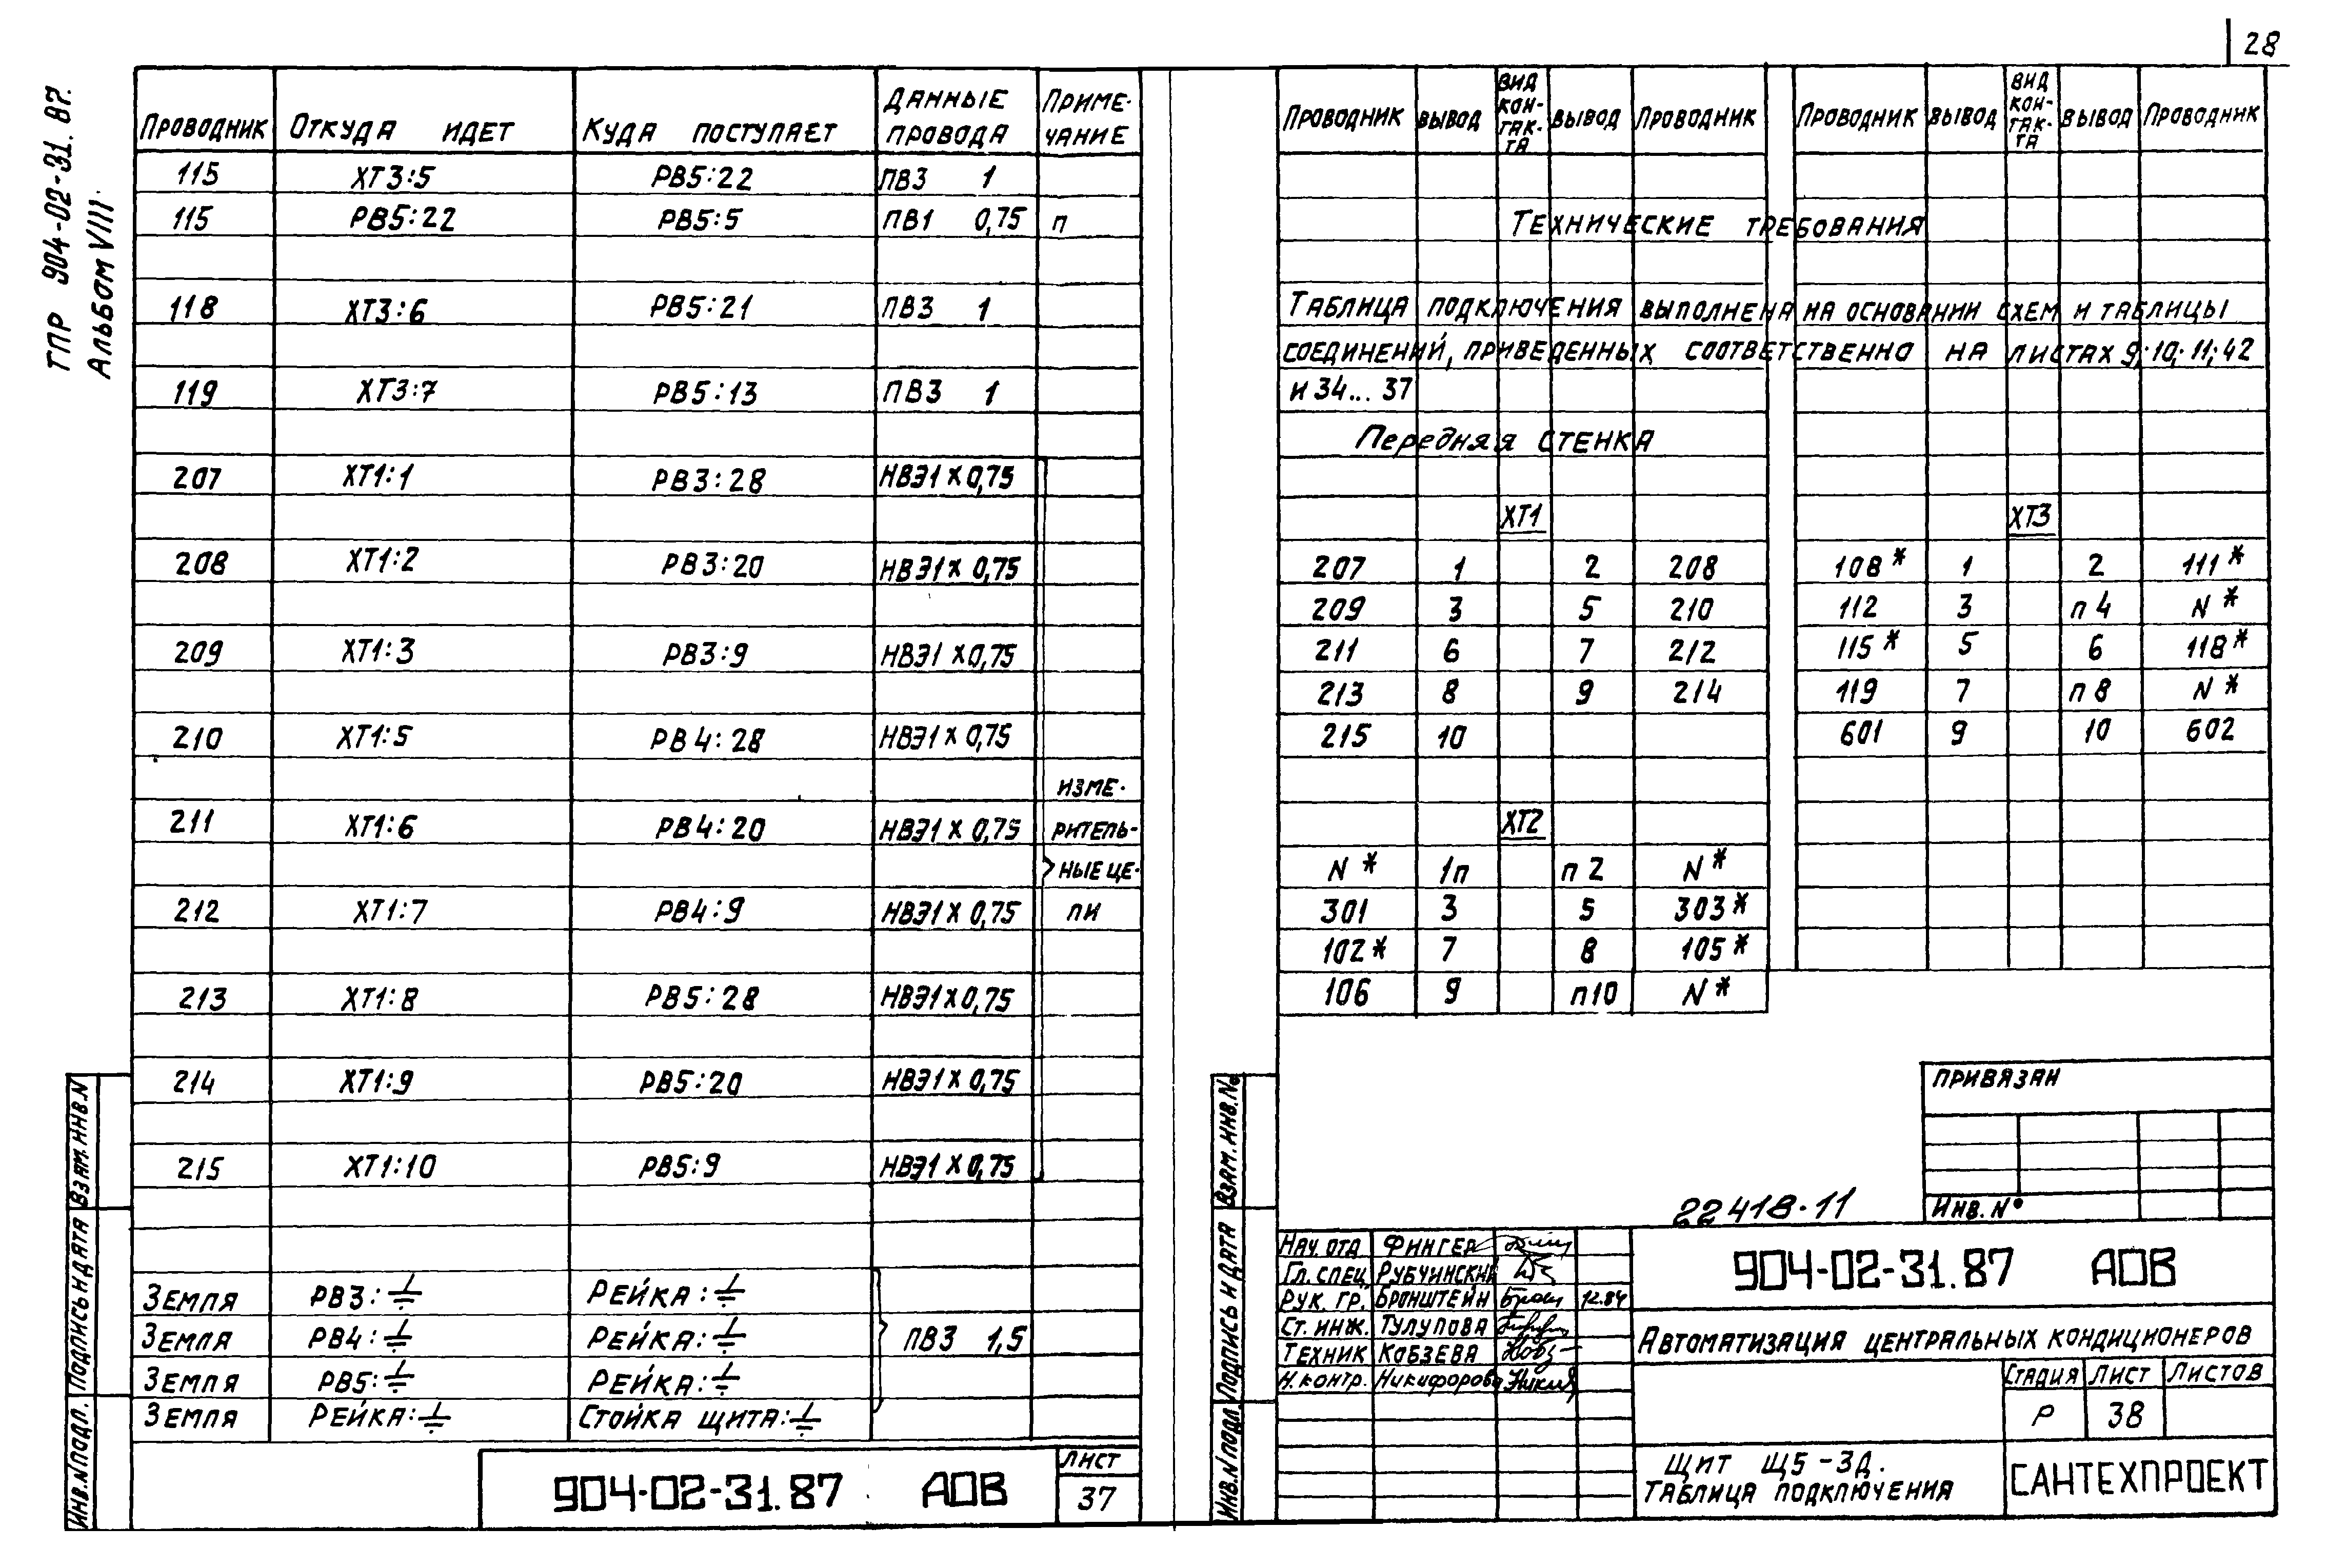 28
ТПР 904-02-31.87.
Альбом VIII.
Проводник Откуда идет Куда поступает Данные провода Приме- чание
115 ХТ3:5 РВ5:22 ПВ3 1
115 РВ5:22 РВ5:5 ПВ1 0,75 п
118 ХТ3:6 РВ5:21 ПВ3 1
119 ХТ3:7 РВ5:13 ПВ3 1
207 ХТ1:1 РВ3:28 НВЭ1х0,75
208 ХТ1:2 РВ3:20 НВЭ1х0,75
209 ХТ1:3 РВ3:9 НВЭ1х0,75
210 ХТ1:5 РВ4:28 НВЭ1х0,75
изме-
211 ХТ1:6 РВ4:20 НВЭ1х0,75 ритель-
ные це-
212 ХТ1:7 РВ4:9 НВЭ1х0,75 пи
213 ХТ1:8 РВ5:28 НВЭ1х0,75
214 ХТ1:9 РВ5:20 НВЭ1х0,75
215 ХТ1:10 РВ5:9 НВЭ1х0,75
Земля РВ3:⏚ Рейка:⏚
Земля РВ4:⏚ Рейка:⏚ ПВ3 1,5
Земля РВ5:⏚ Рейка:⏚
Земля Рейка:⏚ Стойка щита:⏚
904-02-31.87 АОВ
Лист
37
Взам. инв. N
Подпись и дата
Инв. N подл.
Проводник Вывод Вид кон- так- та Вывод Проводник Проводник Вывод Вид кон- так- та Вывод Проводник
Технические требования
Таблица подключения выполнена на основании схем и таблицы
соединений, приведенных соответственно на листах 9; 10; 11; 42
и 34... 37
Передняя стенка
ХТ1 ХТ3
207 1 2 208 108* 1 2 111*
209 3 5 210 112 3 п4 N*
211 6 7 212 115* 5 6 118*
213 8 9 214 119 7 п8 N*
215 10 601 9 10 602
ХТ2
N* 1п п2 N*
301 3 5 303*
102* 7 8 105*
106 9 п10 N*
Привязан
Инв. N°
22418-11
Взам. инв. №
Подпись и дата
Инв. N подл.
Нач. отд Фингер
Гл. спец. Рубчинский
Рук. гр. Бронштейн
Ст. инж. Тулупова
Техник Кобзева
Н. контр. Никифорова
904-02-31.87 АОВ
Автоматизация центральных кондиционеров
Стадия Лист Листов
Р 38
Щит Щ5-3д.
Таблица подключения
САНТЕХПРОЕКТ